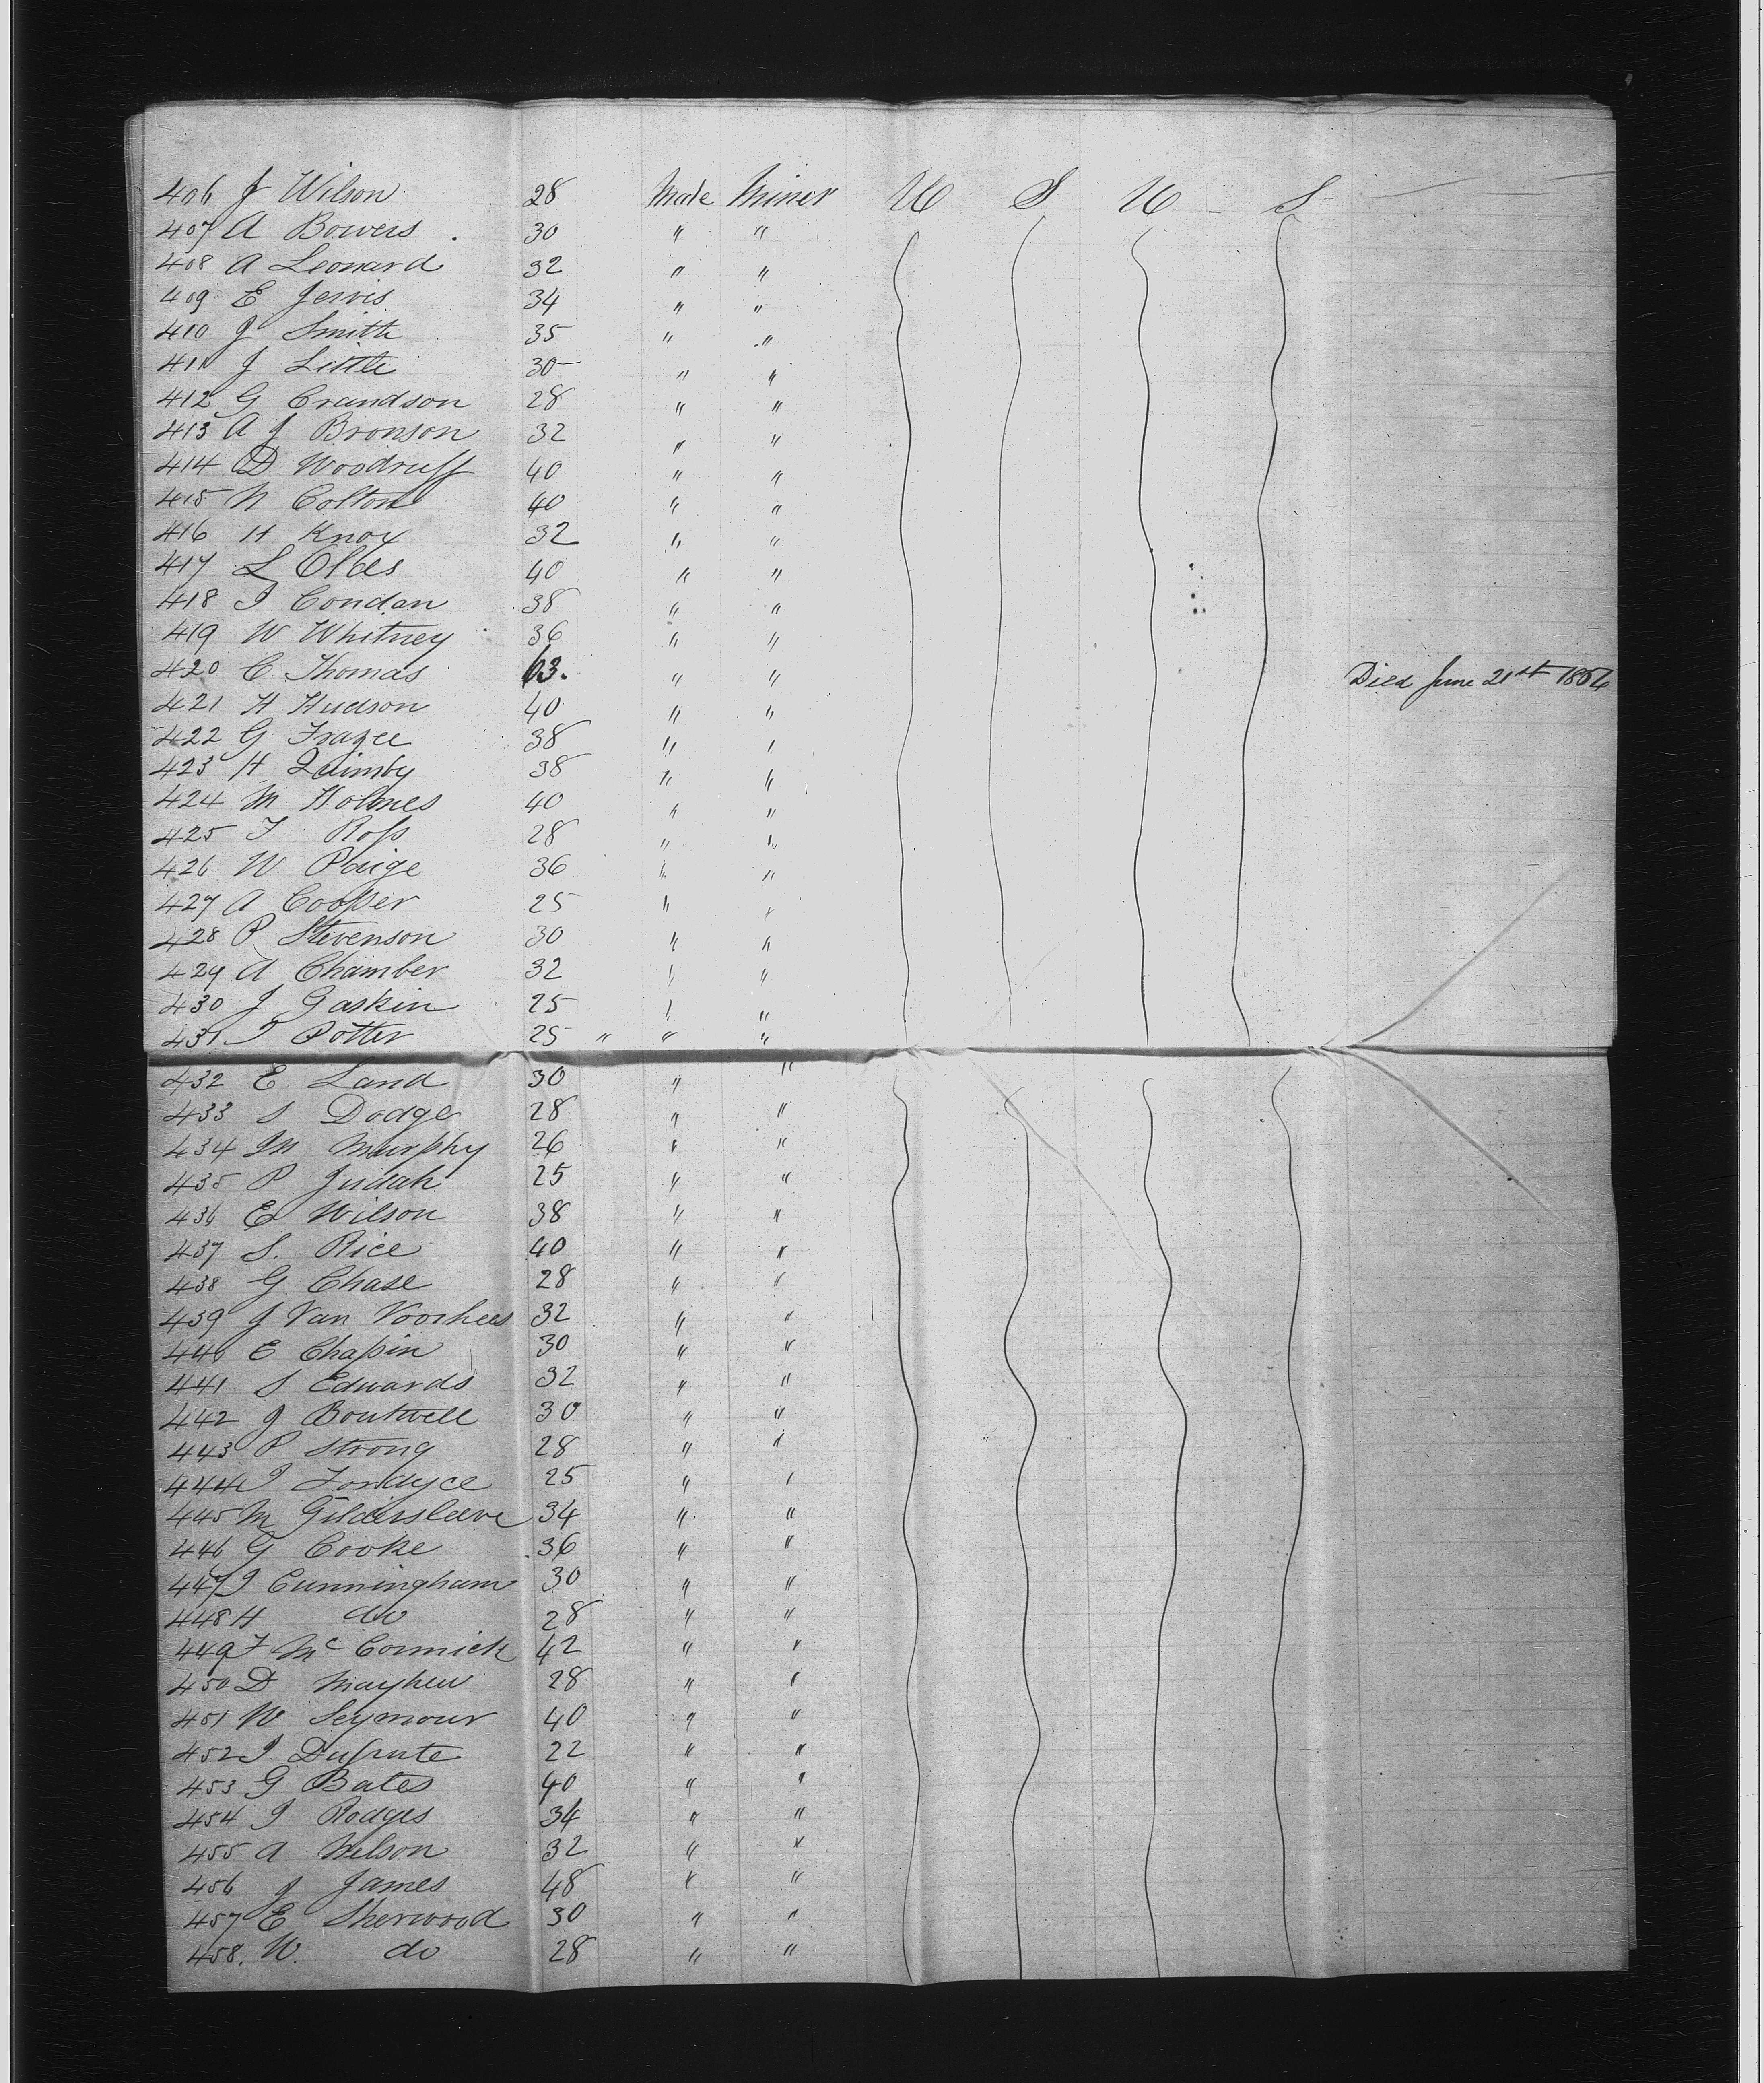 406 J Wilson 28 Male Miner U S U - S
407 A Bowers . 30 " "
408 A Leonard 32 " "
409 E Jervis 34 " "
410 J Smith 35 " "
411 J Little 30 " "
412 G Crandson 28 " "
413 A J Bronson 32 " "
414 D Woodruff 40 " "
415 N Colton 40 " "
416 H Knox 32 " "
417 L Olds 40 " "
418 I Condan 38 " "
419 W Whitney 36 " "
420 C. Thomas 63. " " Died June 21st 1854
421 H Hudson 40 " "
422 G Frazee 38 " "
423 H Quimby 38 " "
424 M Holmes 40 " "
425 F Ross 28 " "
426 W Paige 36 " "
427 A Cooper 25 " "
428 P Stevenson 30 " "
429 A Chamber 32 " "
430 J Gaskin 25 " "
431 I Potter 25 " " "
432 E Land 30 " "
433 S Dodge 28 " "
434 M Murphy 26 " "
435 P Judah 25 " "
436 E Wilson 38 " "
437 S. Rice 40 " "
438 G Chase 28 " "
439 J Van Voorhees 32 " "
440 E Chapin 30 " "
441 S Edwards 32 " "
442 J Boutwell 30 " "
443 P Strong 28 " "
444 I Fordyce 25 " "
445 M Gildersleeve 34 " "
446 G Cooke 36 " "
447 I Cunningham 30 " "
448 H do 28 " "
449 F McCormick 42 " "
450 D Mayhew 28 " "
451 W Seymour 40 " "
452 I Dupute 22 " "
453 G Bates 40 " "
454 I Rodges 34 " "
455 A Nelson 32 " "
456 J James 48 " "
457 E Sherwood 30 " "
458. W. do 28 " "